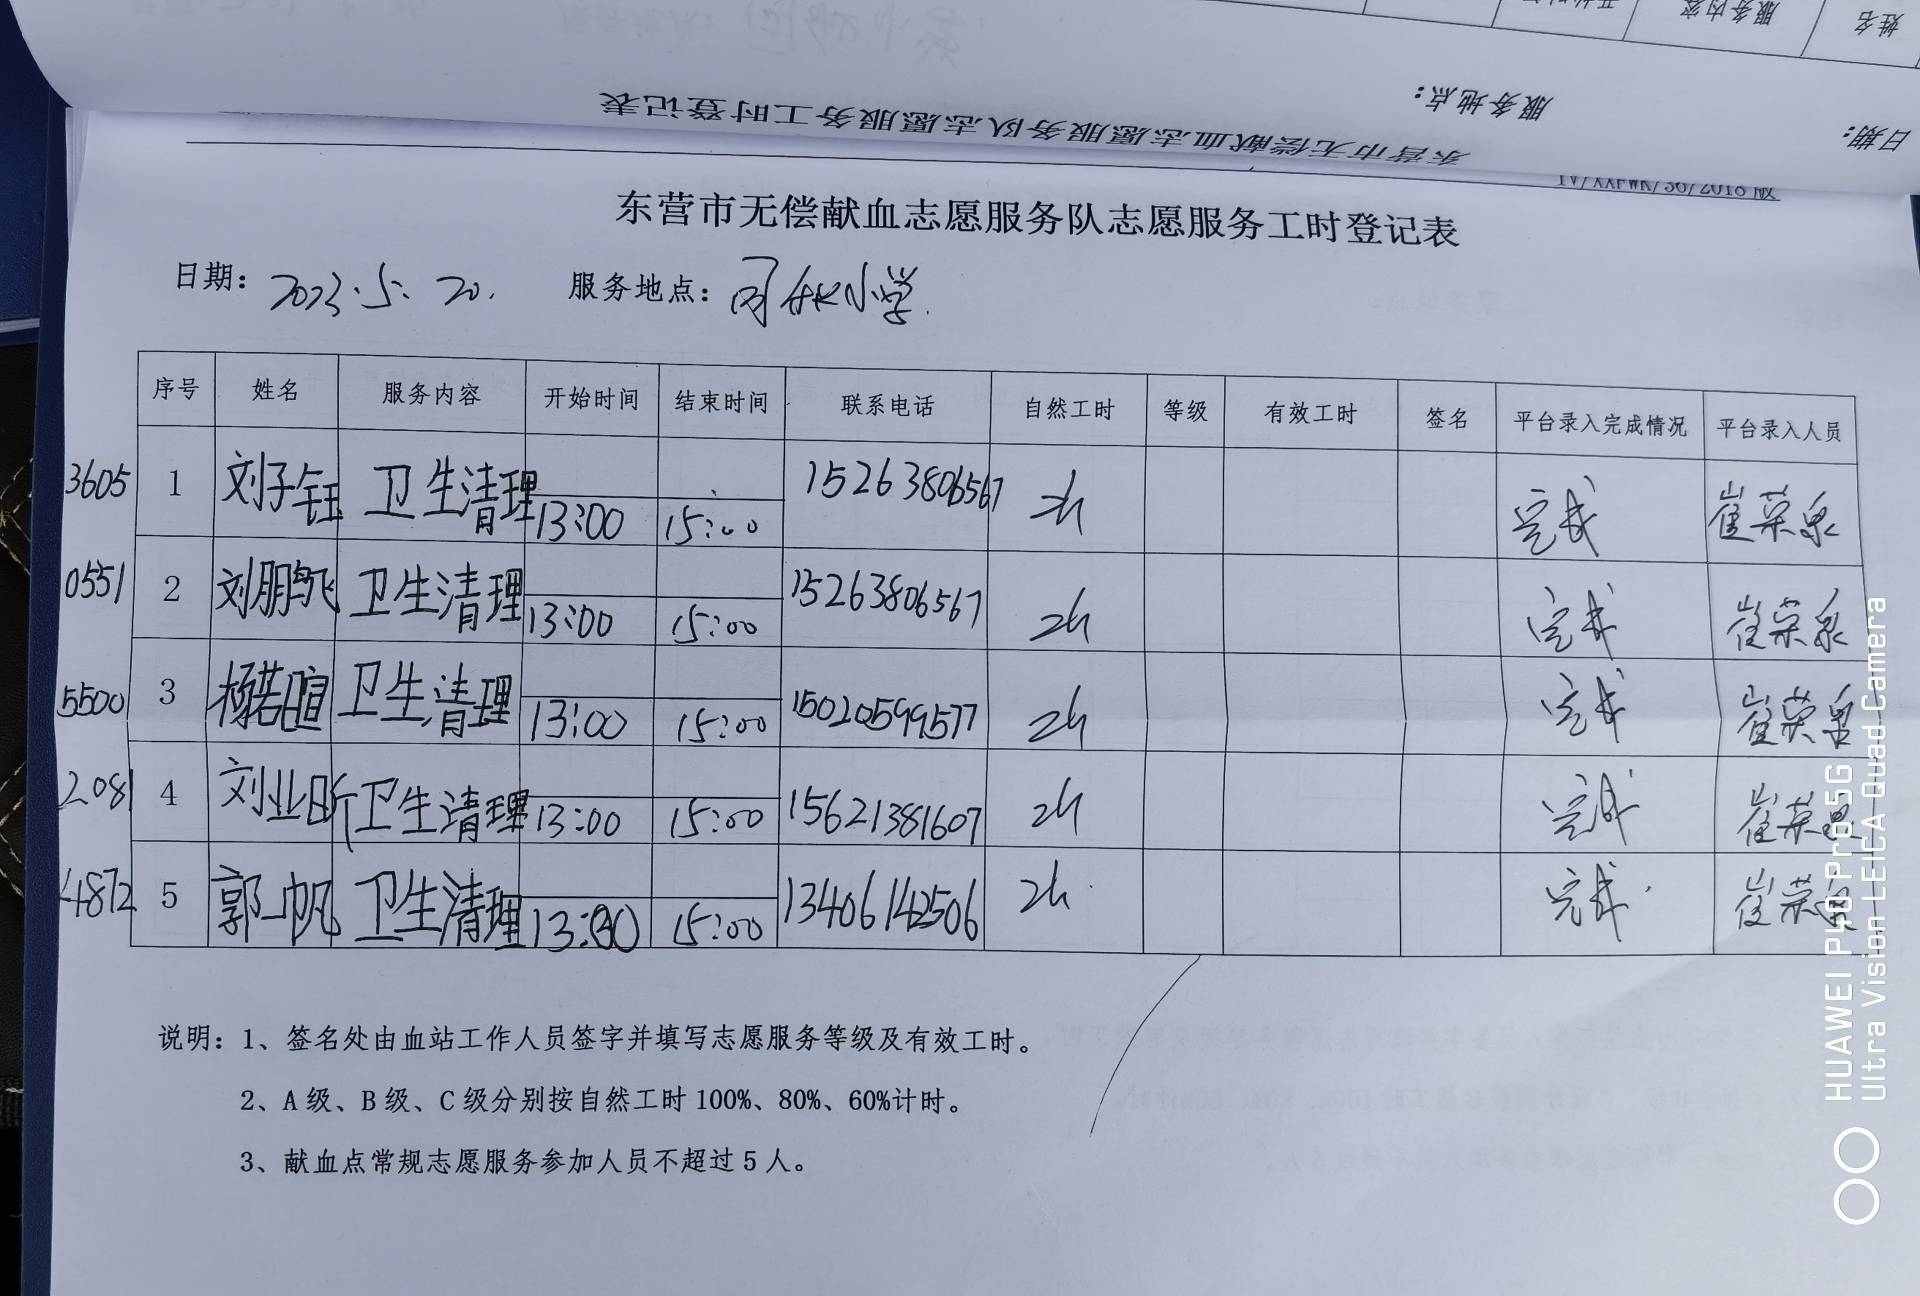 姓名
服务内容
服务地点：
日期：
东营市无偿献血志愿服务队志愿服务工时登记表
IV/XXFWK/36/2018版
东营市无偿献血志愿服务队志愿服务工时登记表
日期： 2023.5.20. 服务地点： 小学.
序号 姓名 服务内容 开始时间 结束时间 联系电话 自然工时 等级 有效工时 签名 平台录入完成情况 平台录入人员
3605 1 刘子钰 卫生清理 13:00 15:00 15263806567 2h 完成 崔荣泉
0551 2 刘鹏飞 卫生清理 13:00 15:00 15263806567 2h 完成 崔荣泉
5500 3 杨若暄 卫生清理 13:00 15:00 15020599577 2h 完成 崔荣泉
2081 4 刘业昕 卫生清理 13:00 15:00 15621381607 2h 完成 崔荣泉
4872 5 郭一帆 卫生清理 13:00 15:00 13406142506 2h 完成 崔荣泉
说明：1、签名处由血站工作人员签字并填写志愿服务等级及有效工时。
2、A级、B级、C级分别按自然工时100%、80%、60%计时。
3、献血点常规志愿服务参加人员不超过5人。
HUAWEI P40 Pro 5G
Ultra Vision LEICA Quad Camera